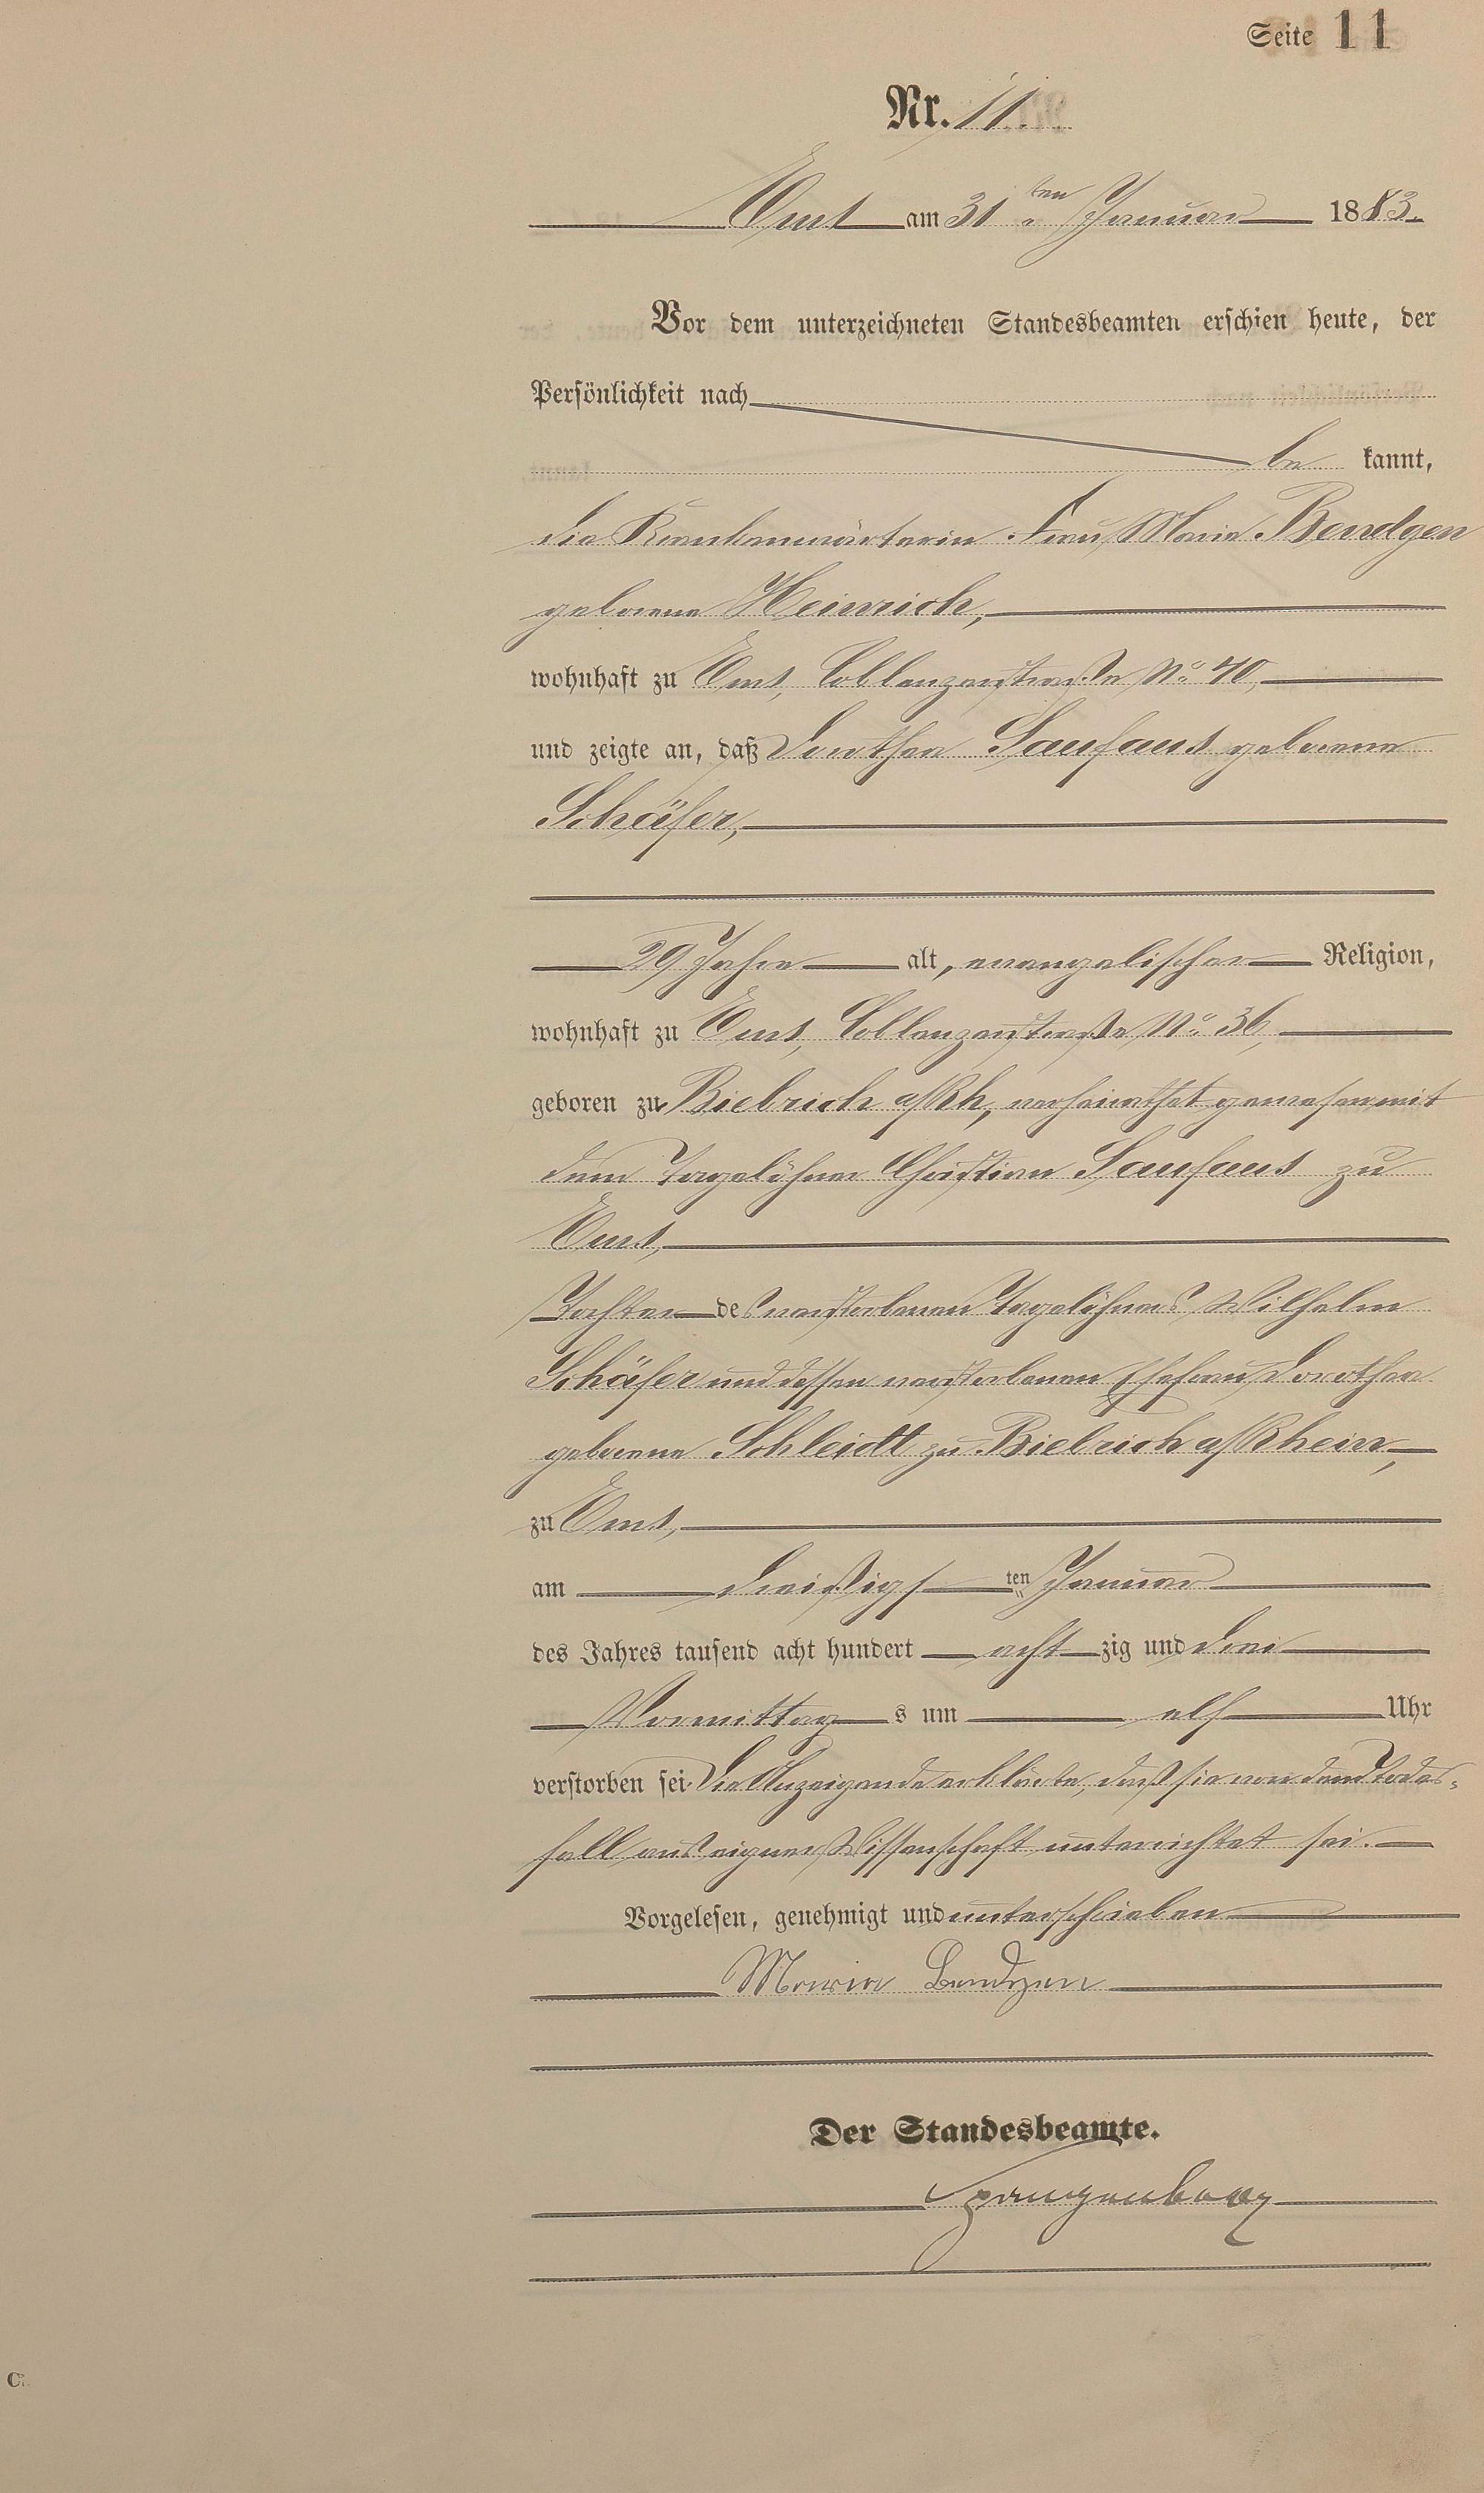 Seite 11
Nr. 11.
Ems am 31ten Januar 1883.
Vor dem unterzeichneten Standesbeamten erschien heute, der
Persönlichkeit nach
be kannt,
die Krankenwärterin Frau Maria Bendgen
geborene Heinrich,
wohnhaft zu Ems, Coblenzerstraße No 40,
und zeigte an, daß Dorothea Saufaus geborene
Schäfer,
29 Jahre alt, evangelischer Religion,
wohnhaft zu Ems, Coblenzerstraße No 36,
geboren zu Biebrich a/Rh, verheirathet gewesen mit
dem Tagelöhner Christian Saufaus zu
Ems,
Tochter des verstorbenen Tagelöhners Wilhelm
Schäfer und dessen verstorbenen Ehefrau Dorothea
geborene Schleidt zu Biebrich a/Rhein,
zu Ems,
am dreißigsten Januar
des Jahres tausend acht hundert acht zig und drei
Vormittag s um elf Uhr
verstorben sei. Die Anzeigende erklärte, daß sie von dem Todes-
fall aus eigner Wissenschaft unterrichtet sei.
Vorgelesen, genehmigt und unterschrieben
Maria Bendgen
Der Standesbeamte.
Spangenberg
C.